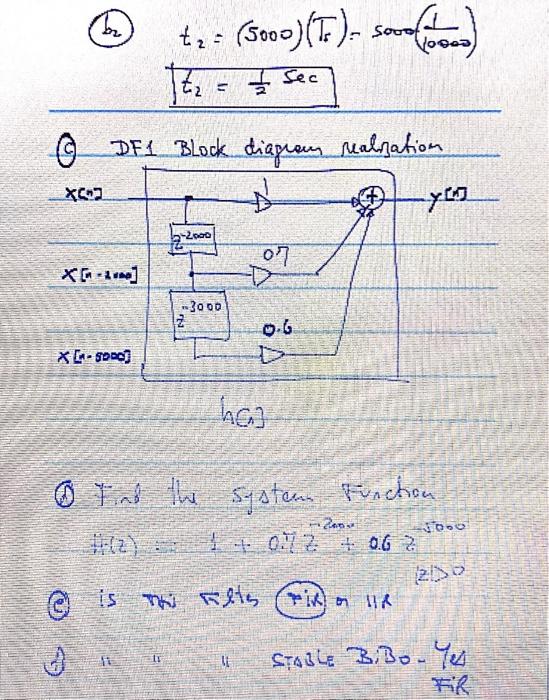 b₂ t₂ = (5000)(Tₛ) = 5000(1/10000)
t₂ = 1/2 sec
c DF1 Block diagram realization
x[n] 1 + y[n]
z⁻²⁰⁰⁰
x[n-2000] 0.7
z⁻³⁰⁰⁰
x[n-5000] 0.6
h[n]
d Find the System Function
H(z) = 1 + 0.7 z⁻²⁰⁰⁰ + 0.6 z⁻⁵⁰⁰⁰
|z|>0
e is this filter FIR or IIR
f " " " STABLE BIBO - Yes
FIR